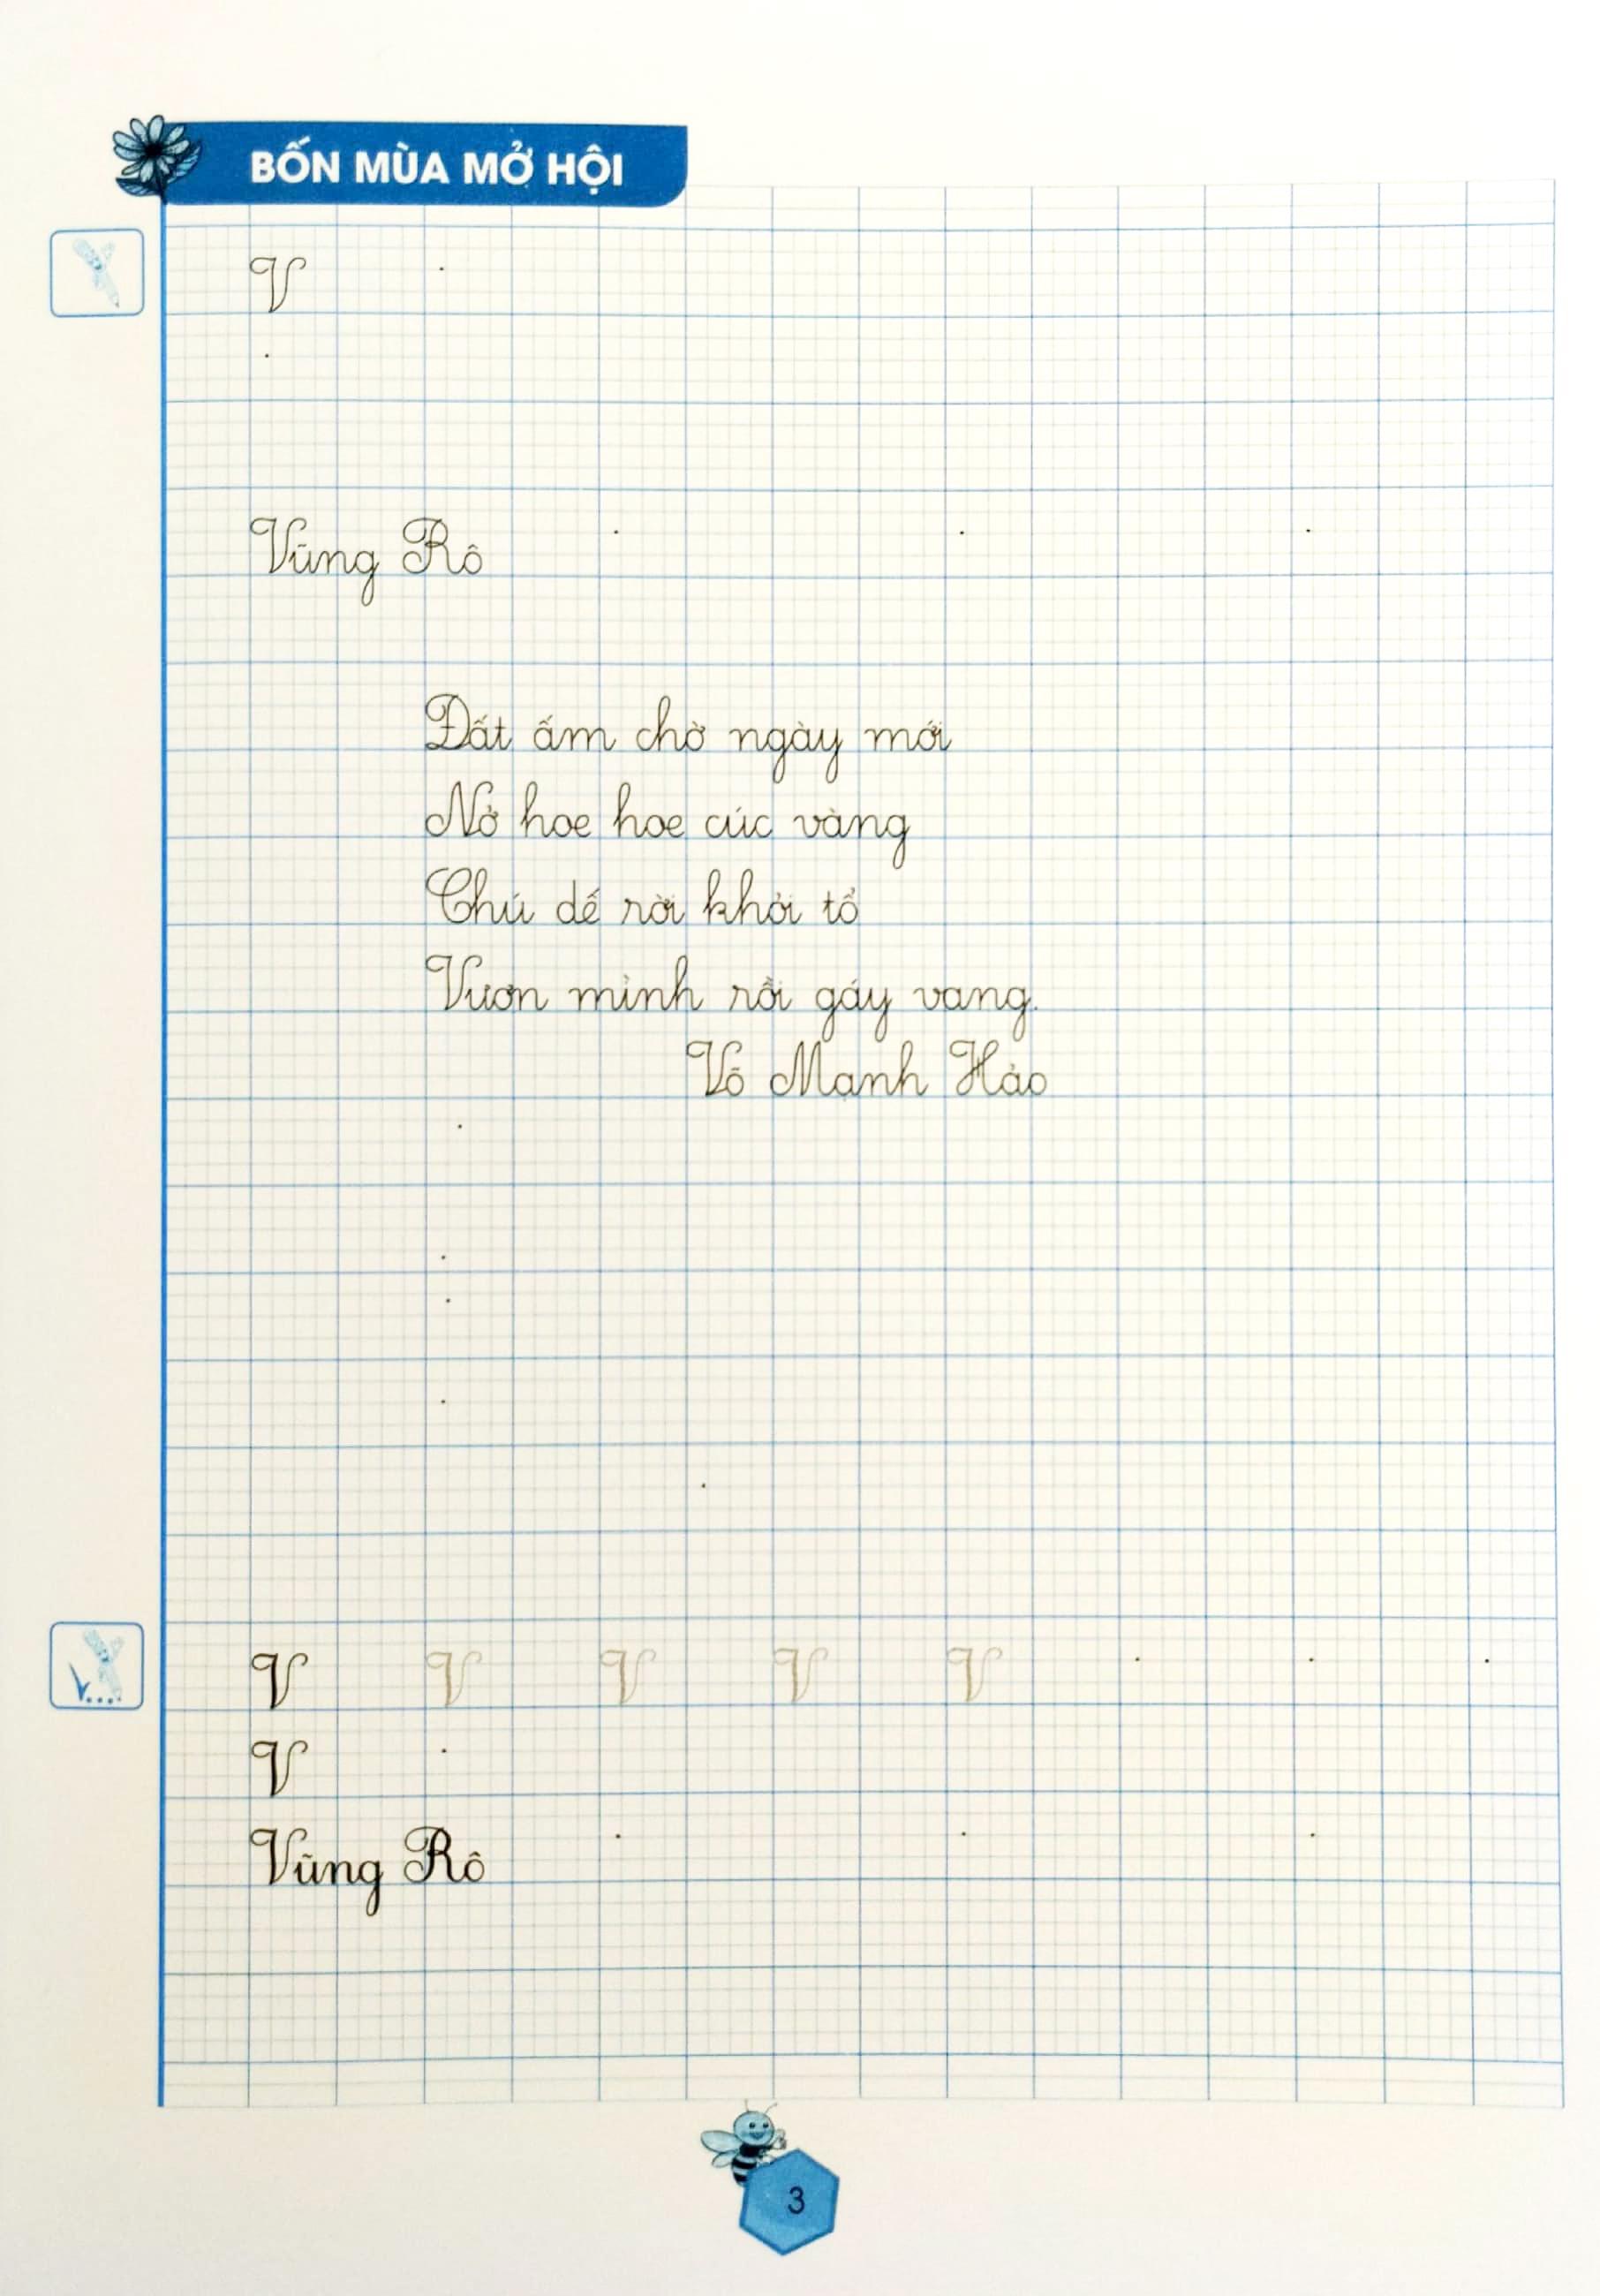 BỐN MÙA MỞ HỘI
V
Vũng Rô
Đất ấm chờ ngày mới
Nở hoe hoe cúc vàng
Chú dế rời khỏi tổ
Vươn mình rồi gáy vang.
Võ Mạnh Hảo
V V V V V
V
Vũng Rô
3